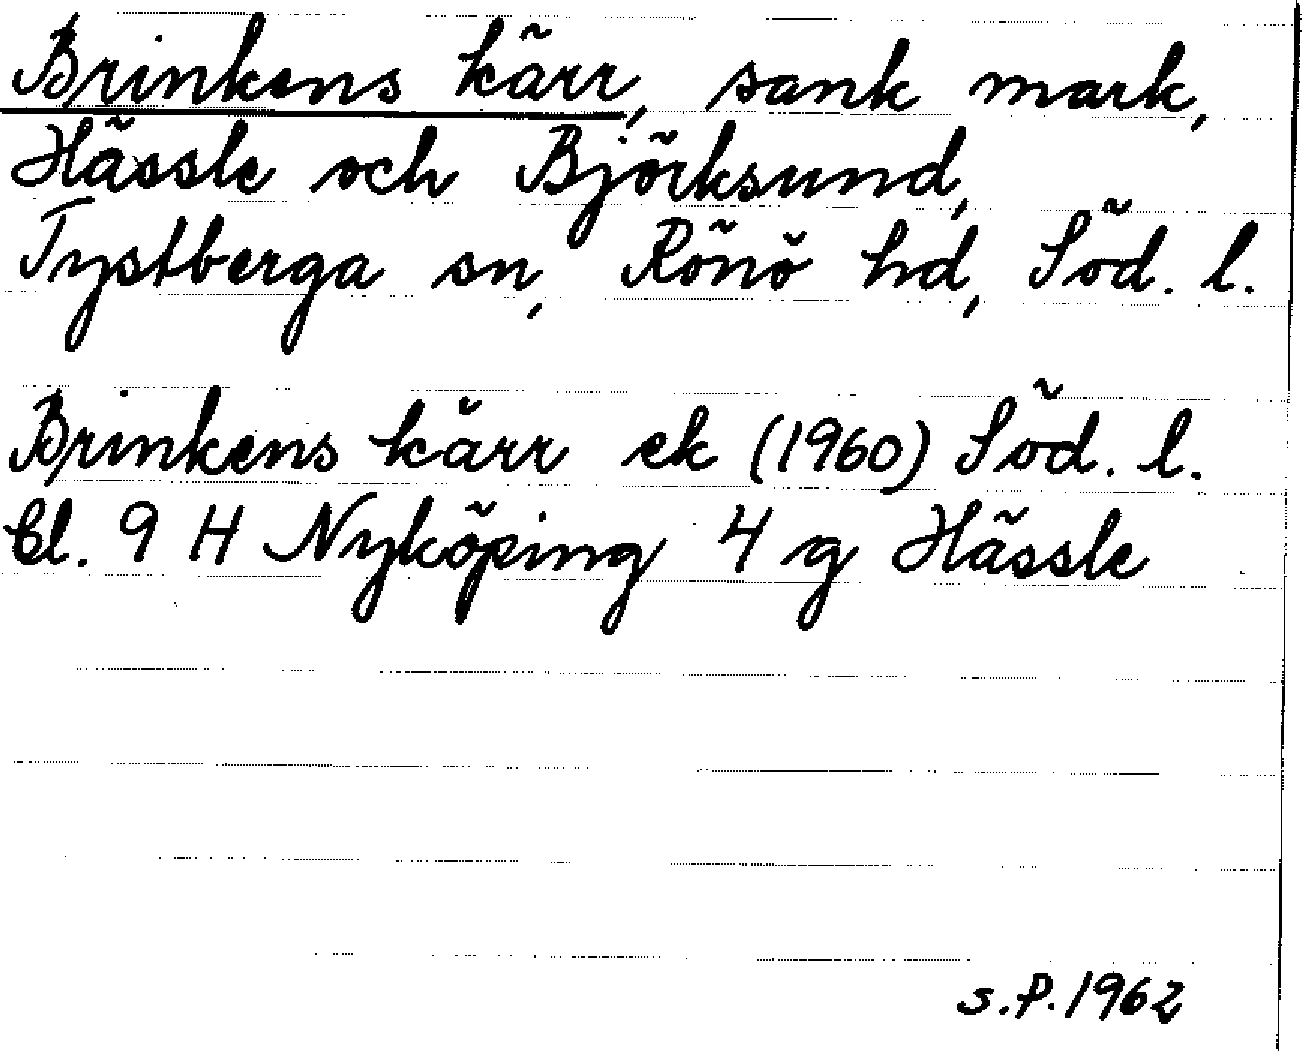 Brinkens kärr, sank mark,
Hässle och Björksund,
Tystberga sn, Rönö hd, Söd. l.
Brinkens kärr ek (1960) Söd. l.
Bl. 9 H Nyköping 4 g Hässle
S.P.1962